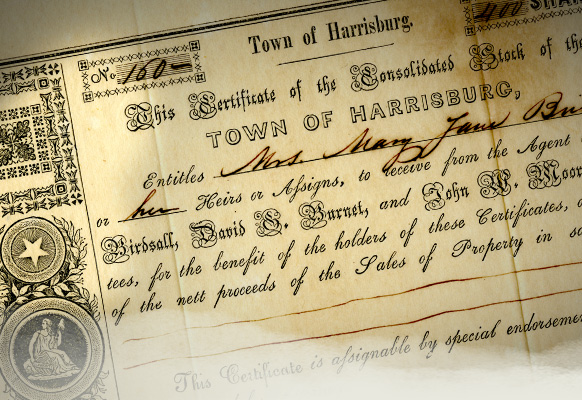 Town of Harrisburg.
400 SHA
No. 160
This Certificate of the Consolidated Stock of the
TOWN OF HARRISBURG,
Entitles Mrs. Mary Jane
or her Heirs or Aſsigns, to receive from the Agent
Birdsall, David G. Burnet, and John W. Moor
tees, for the benefit of the holders of these Certificates,
of the nett proceeds of the Sales of Property in
This Certificate is aſsignable by special endorseme